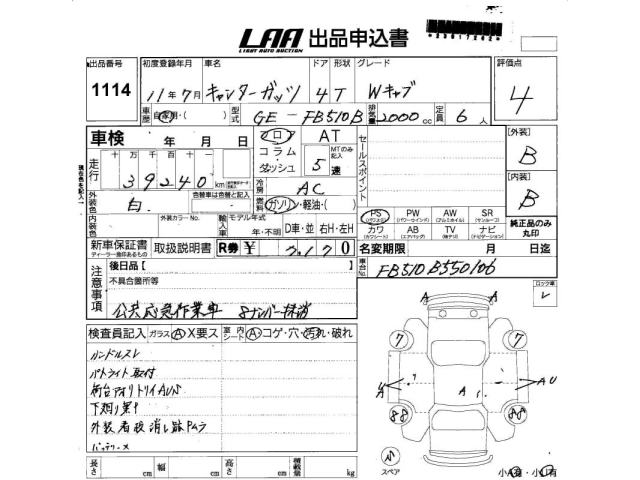 LAA 出品申込書
LIGHT AUTO AUCTION
出品番号 初度登録年月 車名 ドア 形状 グレード 評価点
1114 11年7月 キャンターガッツ 4 T Wキャブ 4
車歴 自家用・( ) 型式 GE-FB510B 排気量 2000cc 定員 6人
車検 年 月 日
走行 十 万 千 百 十 km
39240
フロア AT
コラム
ダッシュ
MTのみ記入
5速
セールスポイント
[外装]
B
[内装]
B
純正品のみ丸印
外装色 白 色替車は色替と記入
冷房 AC
燃料 ガソリン・軽油・( )
PS PW AW SR
(パワステ) (パワーウインド) (アルミホイル) (サンルーフ)
カワ AB TV ナビ
(カワシート) (エアバッグ) (純テレ) (ナビゲーション)
内装色 外装カラーNo. 輸入車 モデル年式 年・不明 D車・並 右H・左H
新車保証書 取扱説明書 R券 ¥ 0
ディーラー捺印があるもの
名変期限 月 日迄
車台No. FB510B550106
注意事項
後日品 [ ]
不具合箇所等
公共応急作業車 8ナンバー抹消
ロック車
レ
検査員記入 ガラス A X要ス 室内シート A コゲ・穴・汚れ・破れ
ハンドルスレ
パトライト取付
荷台アオリトリイAUS
下廻り
外装看板消し跡
バッテリー×
A A
7 7
A A AU
88 88
小
スペア
長さ cm 幅 cm 高さ cm 積載量 kg
小A有・小U有